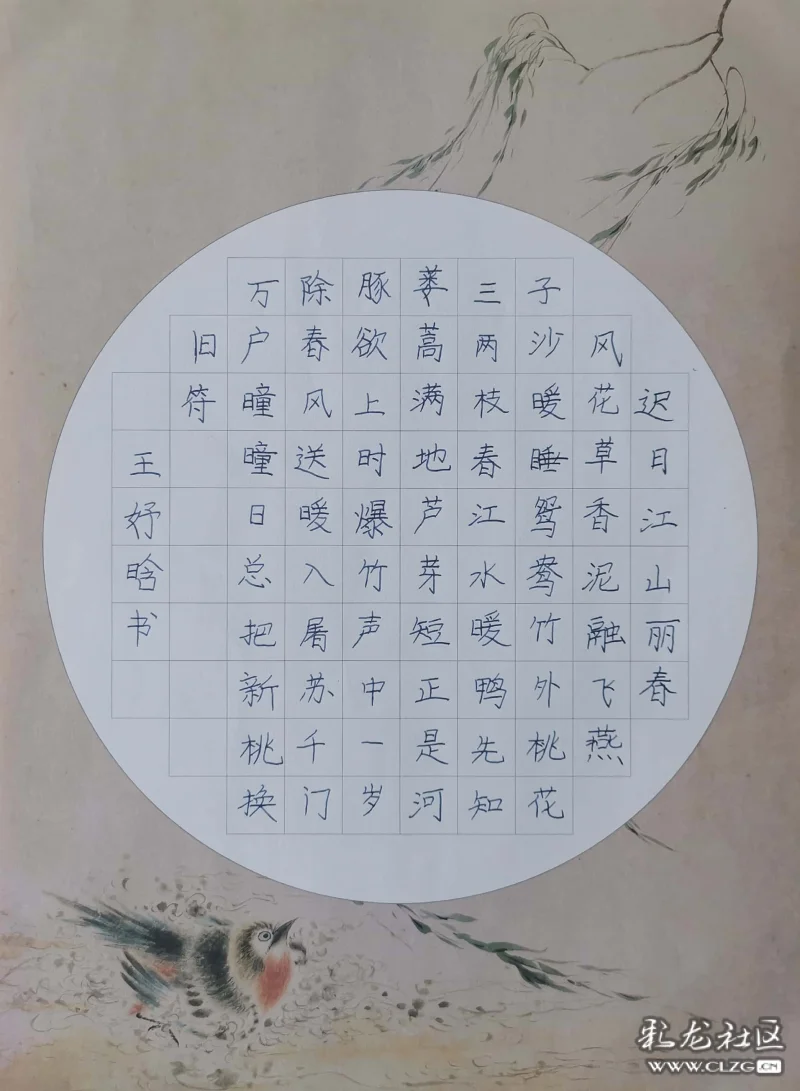 迟日江山丽春
风花草香泥融飞燕
子沙暖睡鸳鸯竹外桃花
三两枝春江水暖鸭先知
蒌蒿满地芦芽短正是河
豚欲上时爆竹声中一岁
除春风送暖入屠苏千门
万户曈曈日总把新桃换
旧符
王妤晗书
彩龙社区
WWW.CLZG.CN